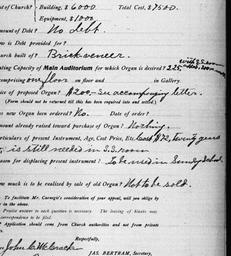 st of Church? Building, $6000. Total Cost, $7500.
Equipment, $1000
mount of Debt? No debt.
w is Debt provided for?
urch built of? Brick veneer
with S.S. rooms
ating Capacity of Main Auditorium for which Organ is desired? 225,
omprising one floor on floor and in Gallery.
ice of proposed Organ? $1200,- See accompanying letter.
(Form should not be returned till this has been required into and noted.)
s new Organ been ordered? No. Date of order?
mount already raised toward purchase of Organ? Nothing.
rticulars of present Instrument, Age, Cost Price, Etc. Cost $72, twenty years
, is still needed in S.S. room
eason for displacing present instrument? to be used in Sunday School.
ow much is to be realized by sale of old Organ? Not to be sold.
To facilitate Mr. Carnegie's consideration of your appeal, will you oblige by
in this?
Precise answer to each question is necessary. The leaving of blanks may
correspondence to be ignored.
Application should come from Church authorities and not from private
Respectfully,
John C. McCrack
JAS. BERTRAM, Secretary,